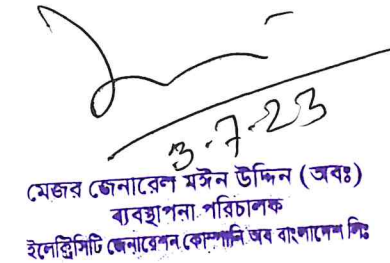 3.7.23
মেজর জেনারেল মঈন উদ্দিন (অবঃ)
ব্যবস্থাপনা পরিচালক
ইলেক্ট্রিসিটি জেনারেশন কোম্পানি অব বাংলাদেশ লিঃ